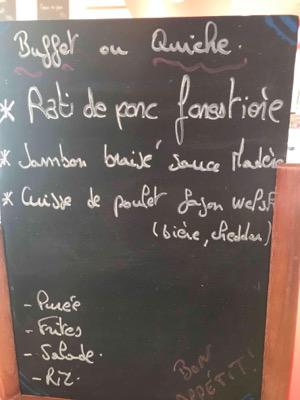 Buffet ou Quiche.
* Roti de porc forestière
* Jambon braisé sauce Madère
* Cuisse de poulet façon welsh
(bière, cheddar)
- Purée
- Frites
- Salade.
- Riz.
BON
APPETIT!